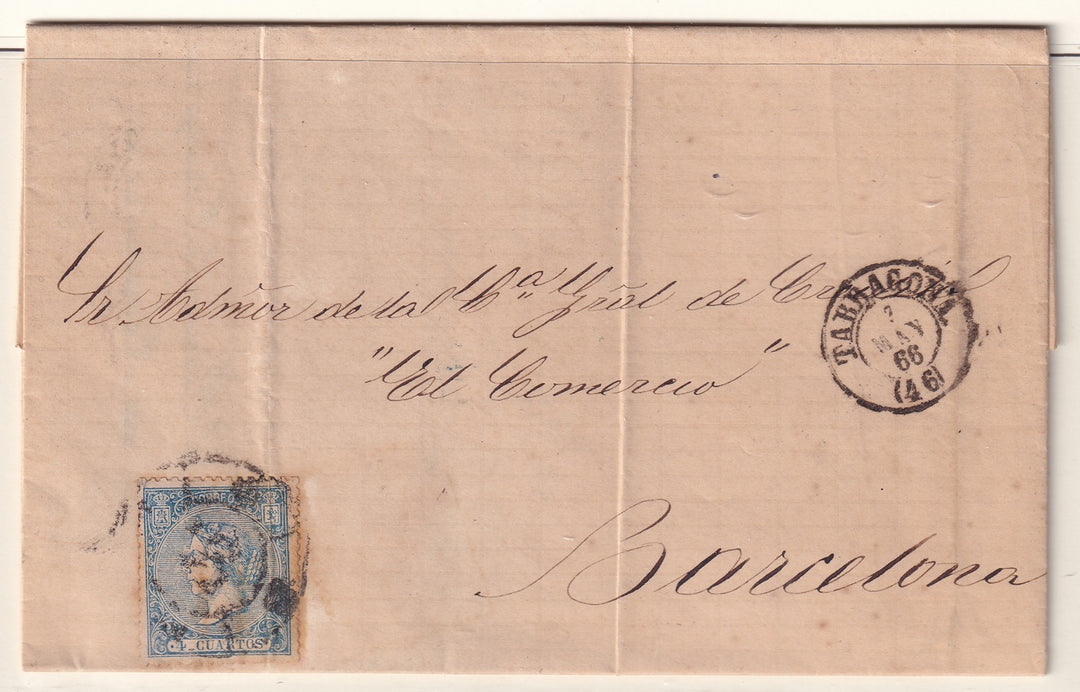 Sr Admõr de la C.ª Gñal de
"El Comercio"
Barcelona
TARRAGONA
MAY
66
(46)
CORREOS
4_CUARTOS